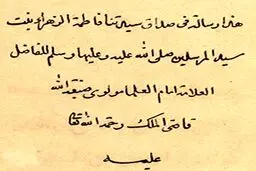 هذا رسالة فى صداق سيدتنا فاطمة الزهرا بنت
سيد المرسلين صلى الله عليه وعليها وسلم للفاضل
العلامة امام العلما مولوى صبغة الله
قاضى الملك رحمة الله تعا
عليه